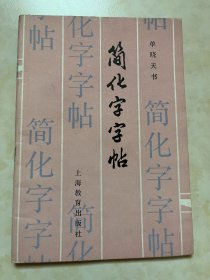 单晓天书
简化字字帖
上海教育出版社
简化字字帖
简化字字帖
简化字字帖
字帖